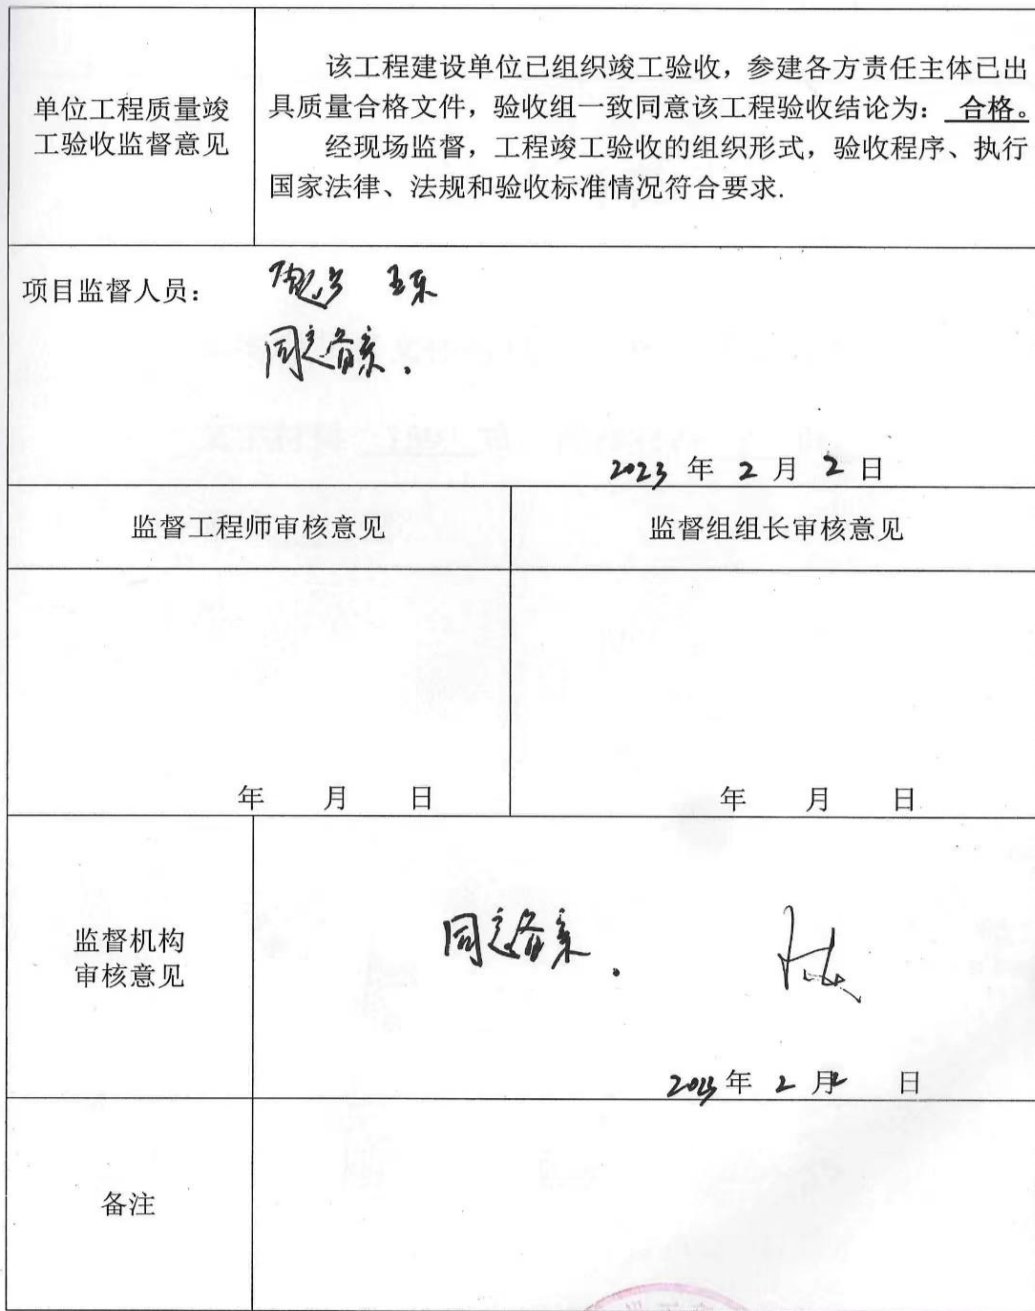 单位工程质量竣
工验收监督意见
该工程建设单位已组织竣工验收，参建各方责任主体已出
具质量合格文件，验收组一致同意该工程验收结论为：合格。
经现场监督，工程竣工验收的组织形式，验收程序、执行
国家法律、法规和验收标准情况符合要求.
项目监督人员：
同意备案.
2023 年 2 月 2 日
监督工程师审核意见
监督组组长审核意见
年 月 日
年 月 日
监督机构
审核意见
同意备案.
2023 年 2 月 2 日
备注